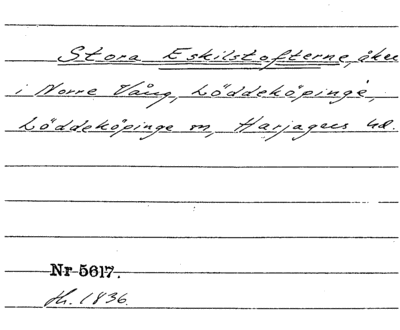 Stora Eskilstofterne, åker
i Norre Vång, Löddeköpinge,
Löddeköpinge sn, Harjagers hd.
Nr 5617.
Hh. 1836.